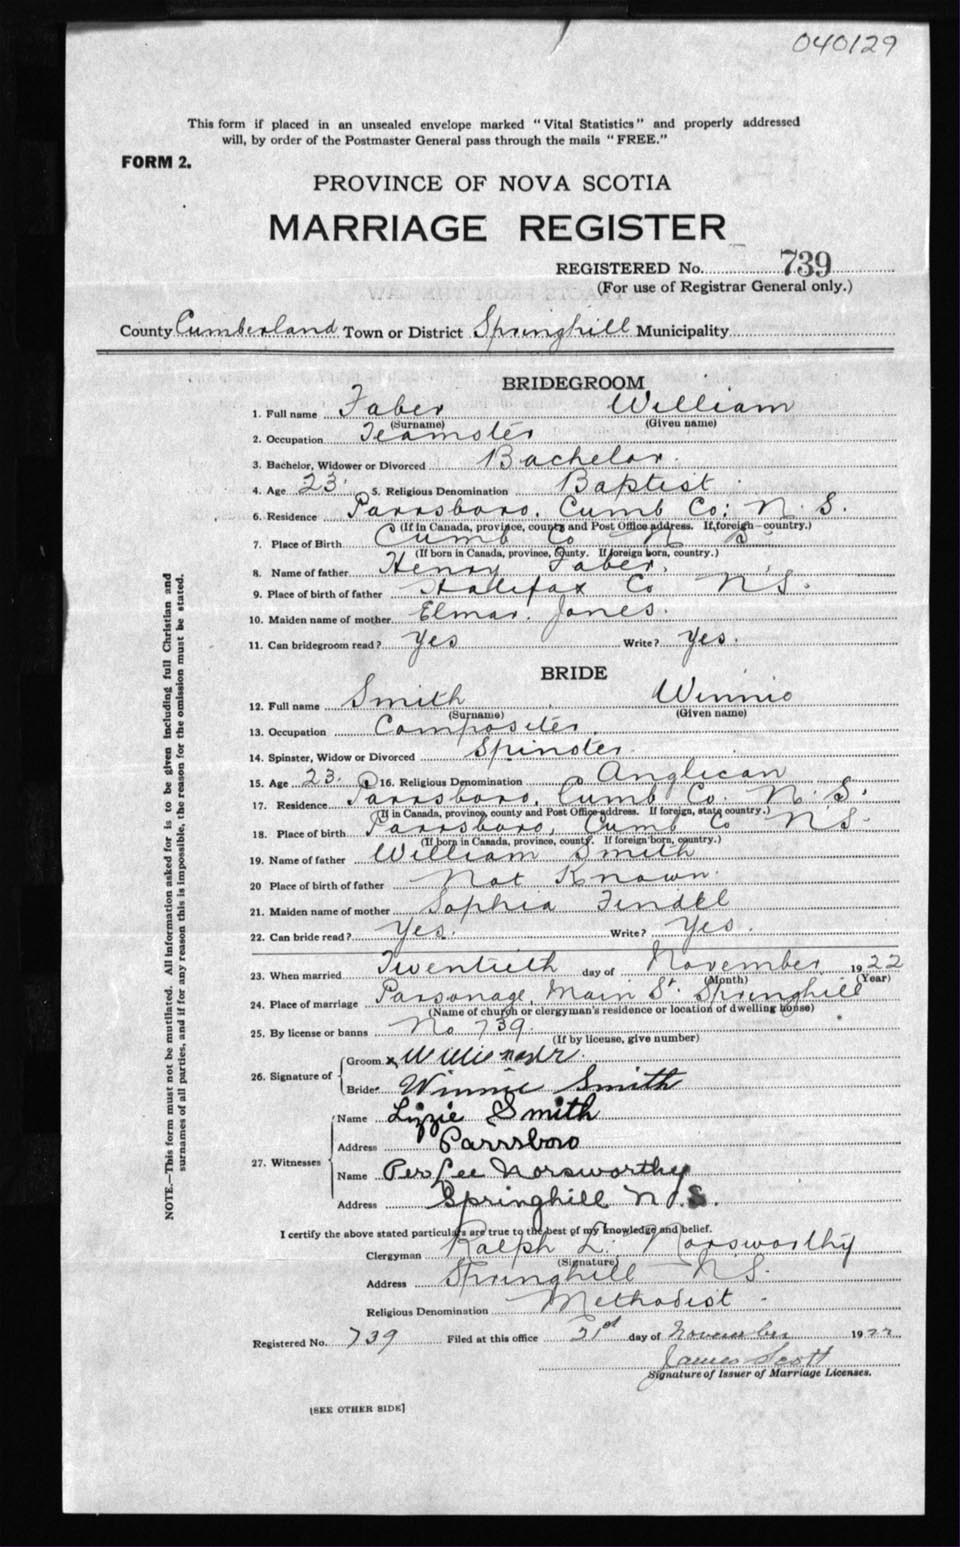 040129
This form if placed in an unsealed envelope marked "Vital Statistics" and properly addressed
will, by order of the Postmaster General pass through the mails "FREE."
FORM 2.
PROVINCE OF NOVA SCOTIA
MARRIAGE REGISTER
REGISTERED No. 739
(For use of Registrar General only.)
County Cumberland Town or District Springhill Municipality
BRIDEGROOM
1. Full name Faber William
(Surname) (Given name)
2. Occupation Teamster
3. Bachelor, Widower or Divorced Bachelor.
4. Age 23. 5. Religious Denomination Baptist
6. Residence Parrsboro, Cumb Co; N. S.
(If in Canada, province, county and Post Office address. If foreign—country.)
7. Place of Birth Cumb Co N S
(If born in Canada, province, county. If foreign born, country.)
8. Name of father Henry Faber.
9. Place of birth of father Hallifax Co N S.
10. Maiden name of mother Elmar. Jones.
11. Can bridegroom read? Yes Write? Yes.
BRIDE
12. Full name Smith Winnie
(Surname) (Given name)
13. Occupation Compositer
14. Spinster, Widow or Divorced Spinster
15. Age 23. 16. Religious Denomination Anglican
17. Residence Parrsboro, Cumb Co. N. S.
(If in Canada, province, county and Post Office address. If foreign, state country.)
18. Place of birth Parrsboro, Cumb Co N S.
(If born in Canada, province, county. If foreign born, country.)
19. Name of father William Smith
20 Place of birth of father Not Known.
21. Maiden name of mother Sophia
22. Can bride read? Yes. Write? Yes.
23. When married Twentieth day of November 1922
(Month) (Year)
24. Place of marriage Parsonage, Main St. Springhill
(Name of church or clergyman's residence or location of dwelling house)
25. By license or banns No 739.
(If by license, give number)
26. Signature of
Groom x
Bride Winnie Smith
27. Witnesses
Name Lizzie Smith
Address Parrsboro
Name Per Lee Norsworthy
Address Springhill N.S.
I certify the above stated particulars are true to the best of my knowledge and belief.
Clergyman Ralph L. Norsworthy
(Signature)
Address Springhill N S.
Religious Denomination Methodist.
Registered No. 739 Filed at this office 21st day of November 1922
James Scott
Signature of Issuer of Marriage Licenses.
[SEE OTHER SIDE]
NOTE.—This form must not be mutilated. All information asked for is to be given including full Christian and
surnames of all parties, and if for any reason this is impossible, the reason for the omission must be stated.